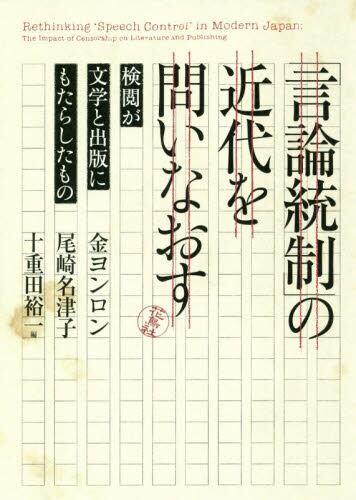 Rethinking 'Speech Control' in Modern Japan:
The Impact of Censorship on Literature and Publishing
「言論統制」の
近代を
問いなおす
検閲が
文学と出版に
もたらしたもの
金ヨンロン
尾崎名津子
十重田裕一 編
花鳥社